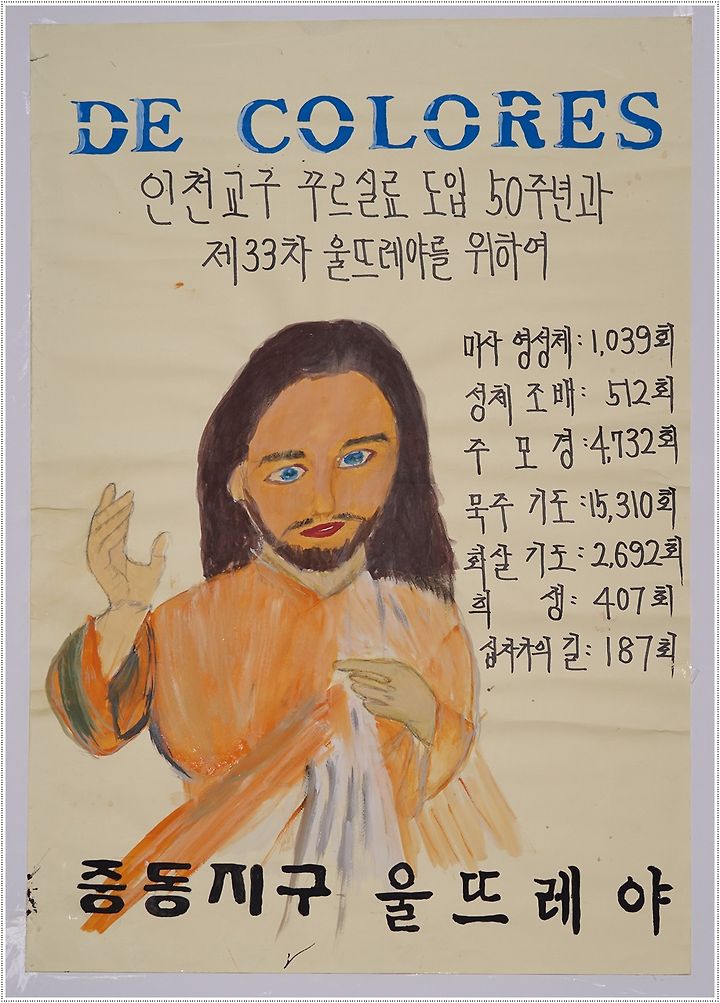 DE COLORES
인천교구 꾸르실료 도입 50주년과
제33차 울뜨레야를 위하여
미사 영성체: 1,039회
성체 조배: 512회
주 모 경: 4,732회
묵주 기도: 15,310회
화살 기도: 2,692회
희 생: 407회
십자가의 길: 187회
중동지구 울뜨레야